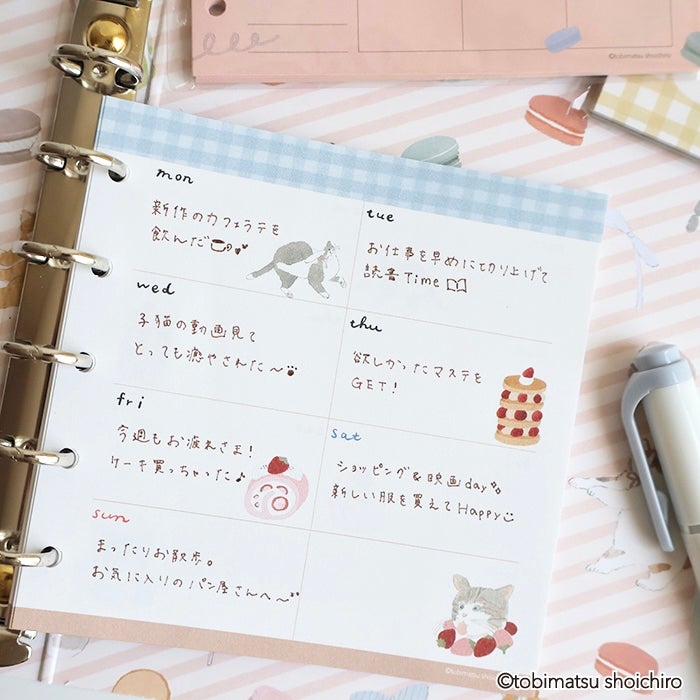 ©tobimatsu shoichiro
mon
新作のカフェラテを
飲んだ
tue
お仕事を早めに切り上げて
読書Time
wed
子猫の動画見て
とっても癒やされた〜
thu
欲しかったマステを
GET!
fri
今週もお疲れさま!
ケーキ買っちゃった♪
sat
ショッピング&映画day
新しい服を買えてHappy
sun
まったりお散歩。
お気に入りのパン屋さんへ〜
©tobimatsu shoichiro
©tobimatsu shoichiro